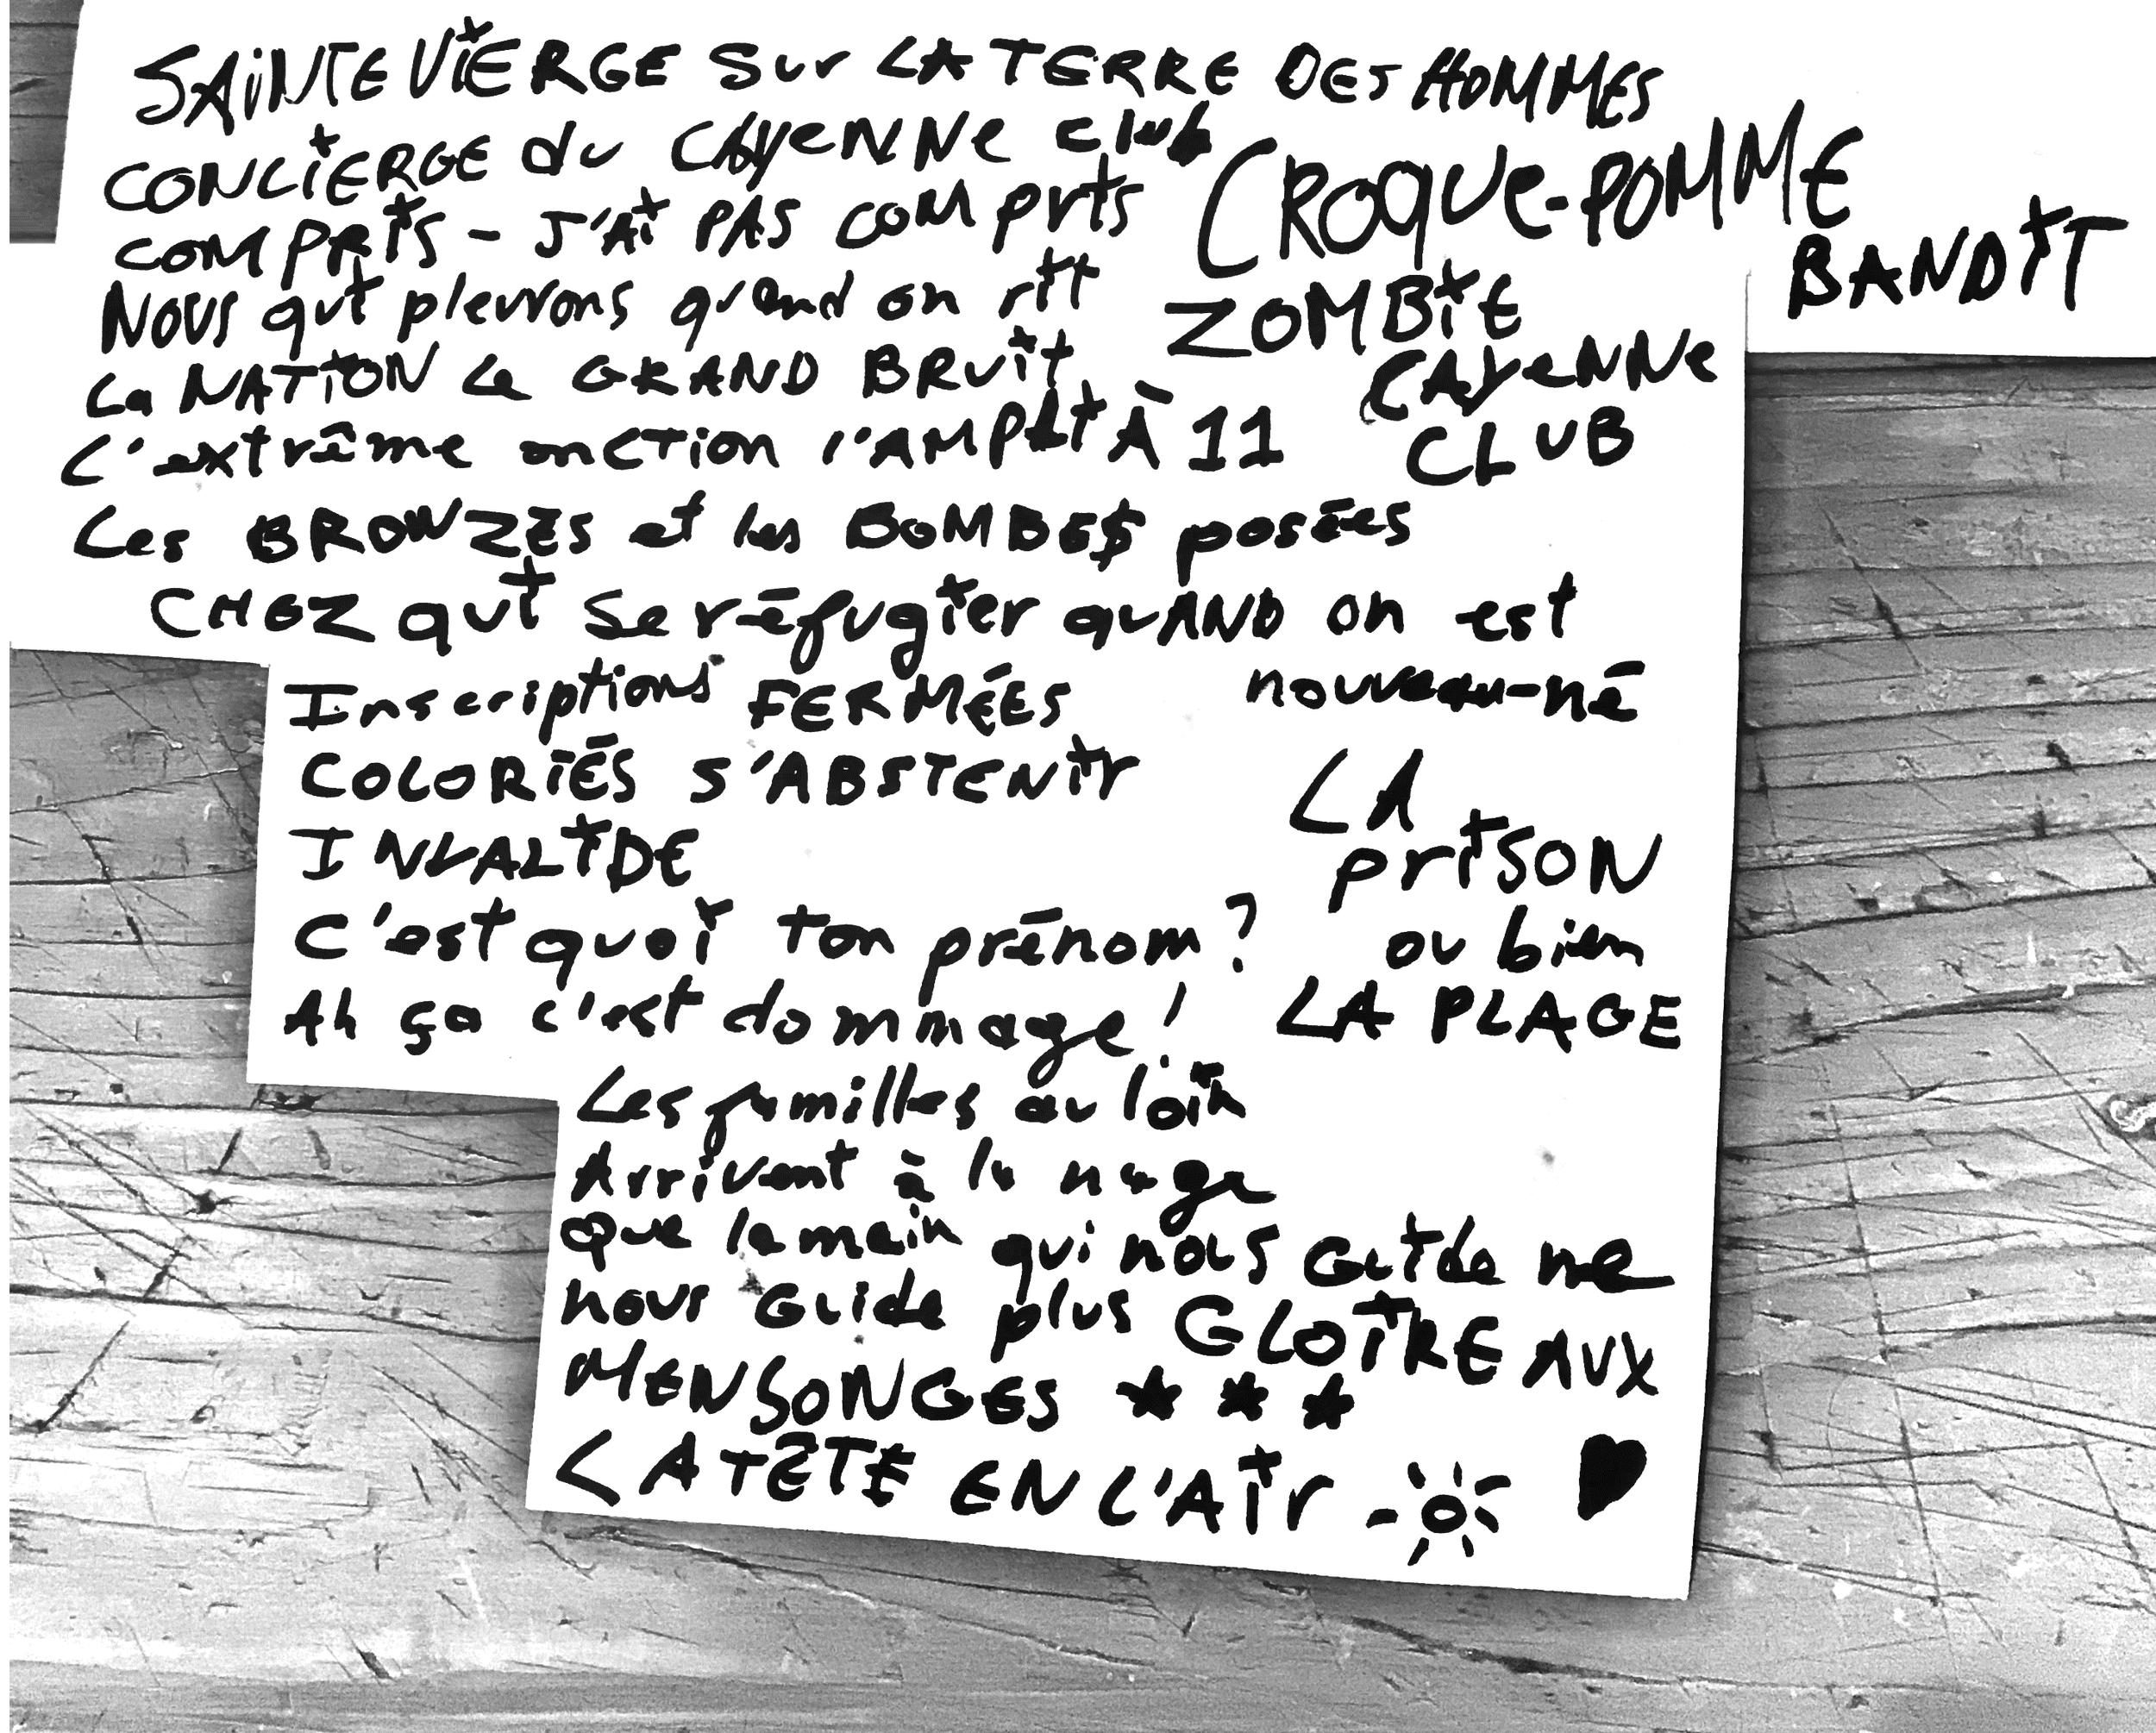 SAINTE VIERGE sur LA TERRE DES HOMMES
CONCIERGE du CAYENNE club
COMPRIS - J'AI PAS compris
NOUS qui pleurons quand on rit
La NATION Le GRAND BRUIT
L'extrême onction l'AMPLI À 11
CROQUE-POMME
BANDIT
ZOMBIE
CAYENNE
CLUB
Les BRONZÉS et les BOMBE$ posées
CHEZ qui se réfugier QUAND on est
nouveau-né
Inscriptions FERMÉES
COLORIÉS S'ABSTENIR
INVALIDE
C'est quoi ton prénom?
Ah ça c'est dommage!
LA
PRISON
ou bien
LA PLAGE
Les familles au loin
Arrivent à la nage
Que la main qui nous Guide ne
nous Guide plus GLOIRE AUX
MENSONGES ★ ★ ★
LA TÊTE EN L'AIR - ☀ ♥